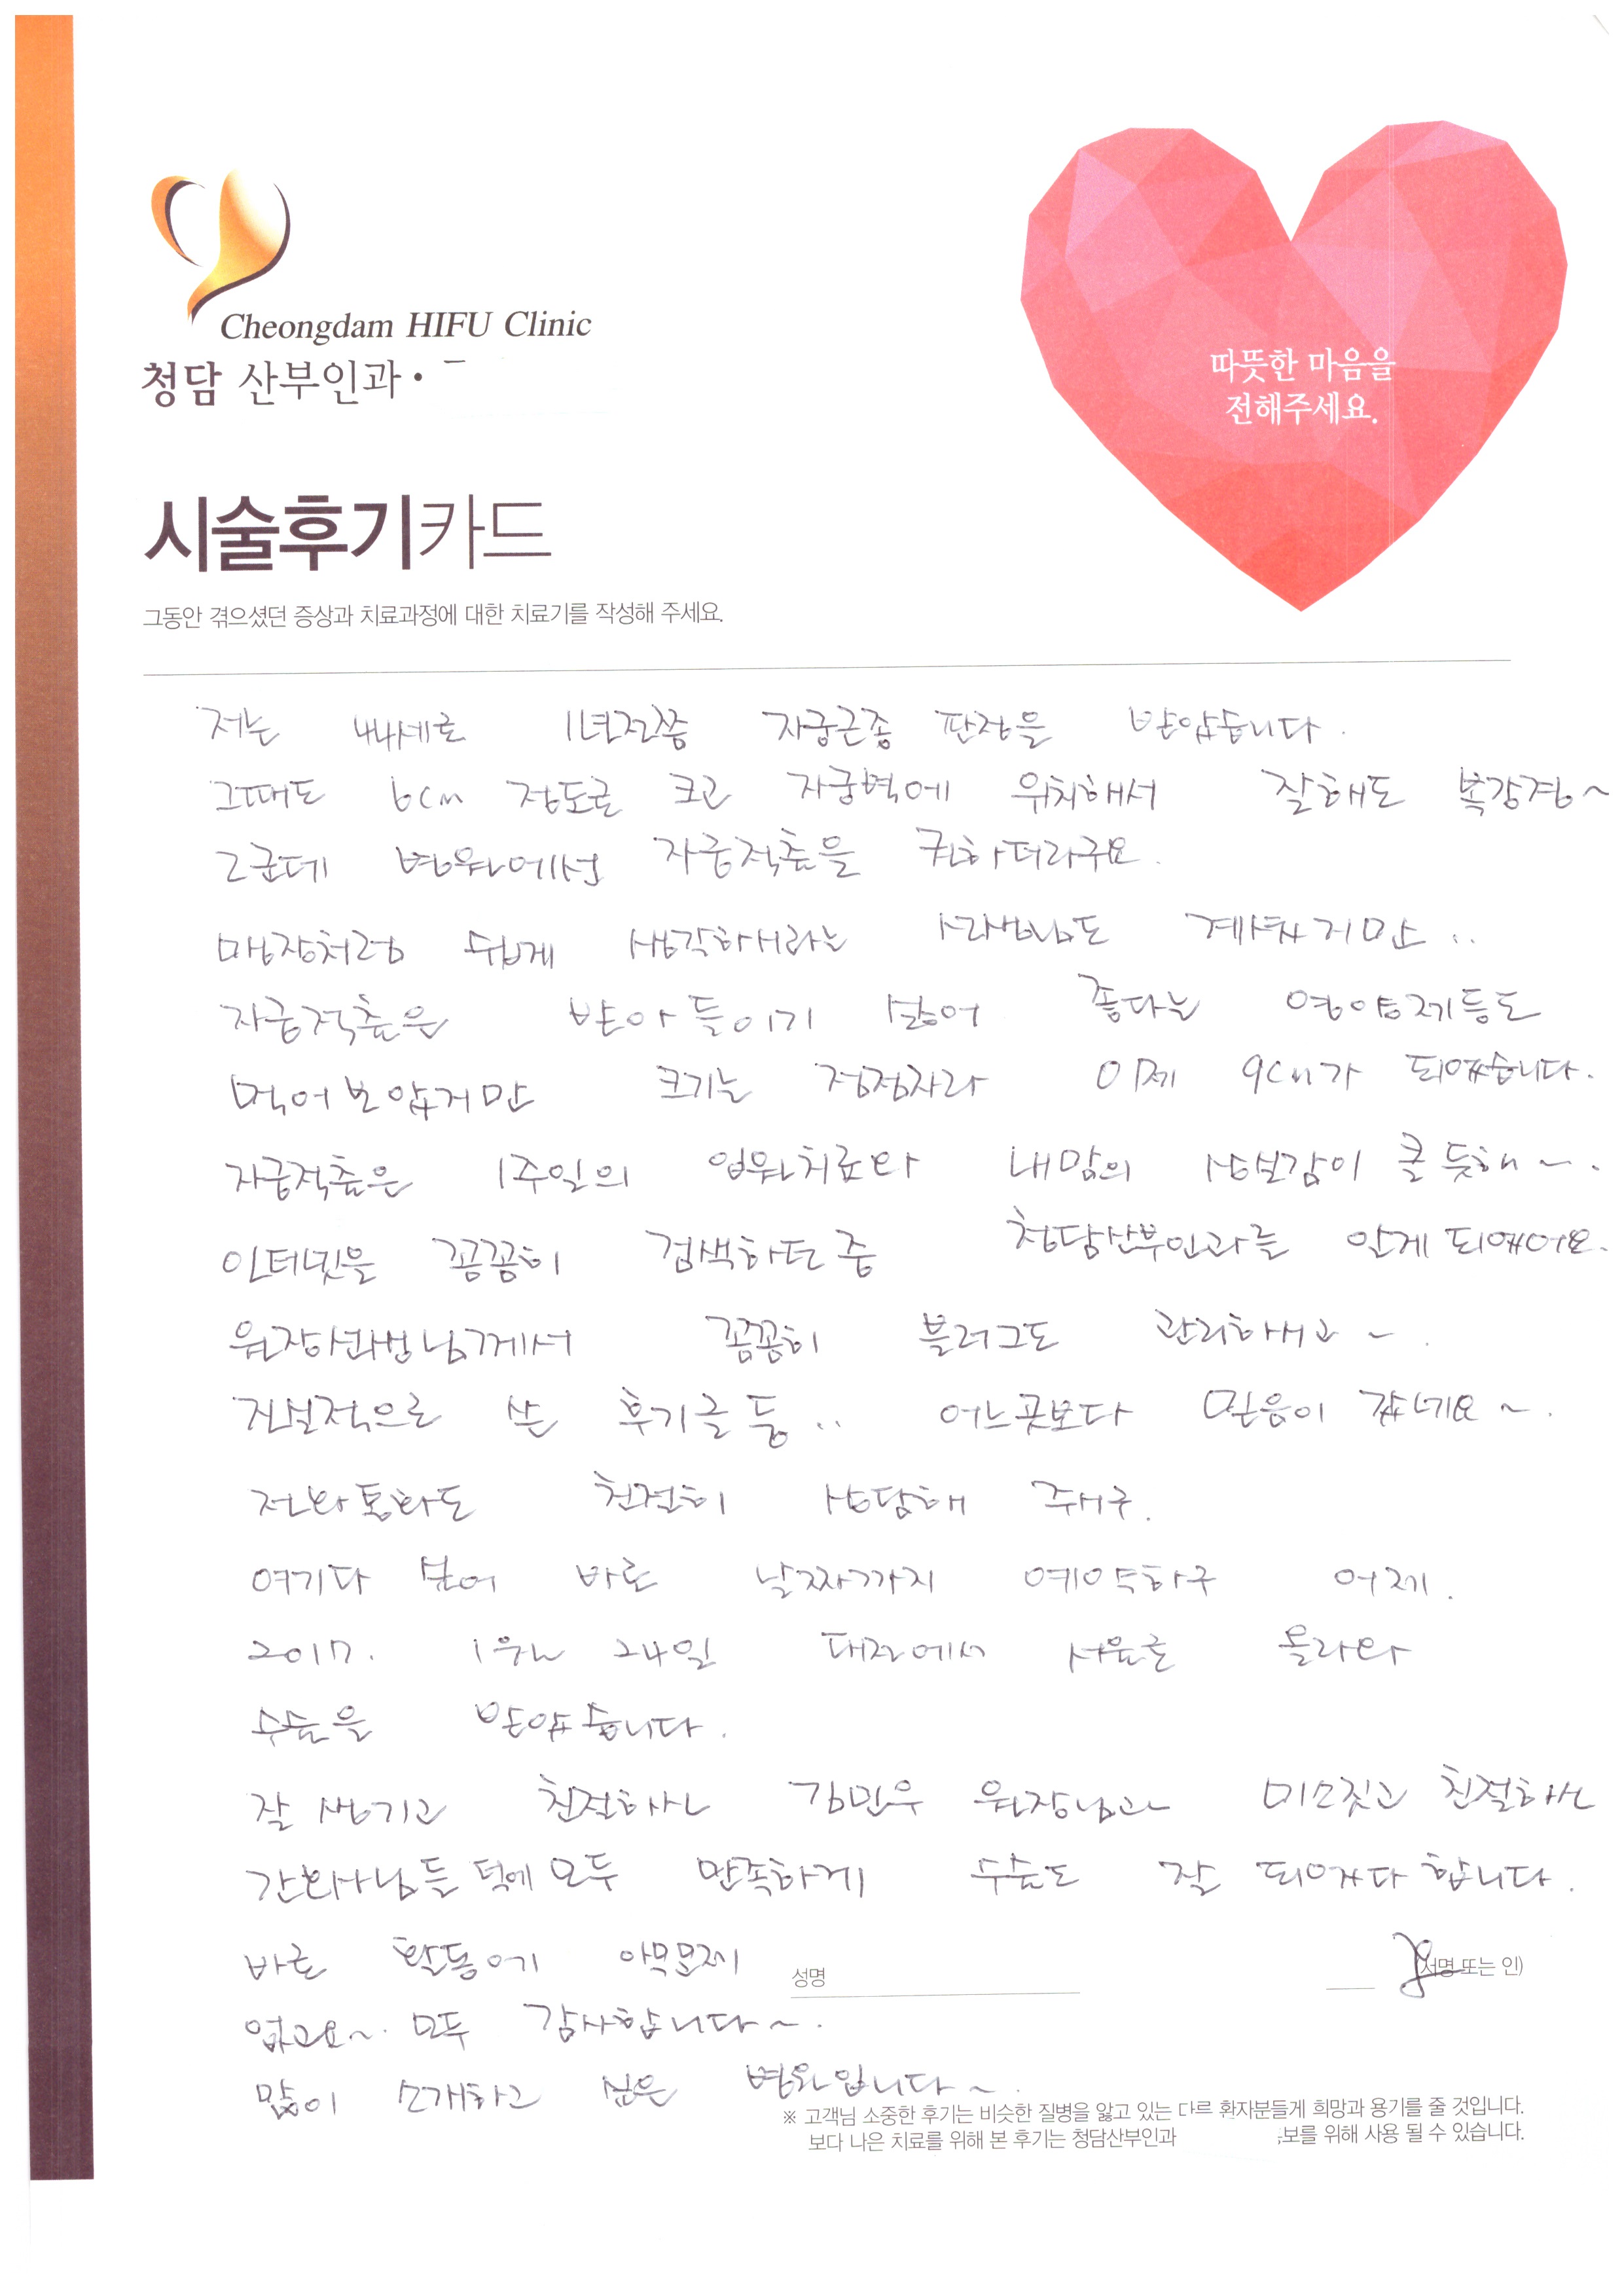 Cheongdam HIFU Clinic
청담 산부인과·
따뜻한 마음을
전해주세요.
시술후기카드
그동안 겪으셨던 증상과 치료과정에 대한 치료기를 작성해 주세요.
저는 44세로 1년전쯤 자궁근종 판정을 받았습니다.
그때도 6cm 정도로 크고 자궁벽에 위치해서 잘해도 복강경~
그군데 병원에서 자궁적출을 권하더라구요.
맹장처럼 쉽게 생각하시라는 선생님도 계셨지만..
자궁적출은 받아들이기 싫어 좋다는 영양제등도
먹어보았지만 크기는 점점자라 이제 9cm가 되었습니다.
자궁적출은 1주일의 입원치료와 내맘의 상실감이 클듯해~.
인터넷을 꼼꼼히 검색하던중 청담산부인과를 알게 되었어요.
원장선생님께서 꼼꼼히 블러그도 관리하시고~.
진실적으로 쓴 후기글등.. 어느곳보다 믿음이 갔네요~.
전화통화도 친절히 상담해 주시구.
여기다 싶어 바로 날짜까지 예약하구 어제.
2017. 1월 24일 대전에서 서울로 올라와
수술을 받았습니다.
잘생기고 친절하신 김민우 원장님과 미소짓고 친절하신
간호사님들 덕에 모두 만족하게 수술도 잘 되었다 합니다.
바로 활동에 아무문제
없고요~. 모두 감사합니다~.
많이 소개하고 싶은 병원입니다~.
성명
(서명 또는 인)
※ 고객님 소중한 후기는 비슷한 질병을 앓고 있는 다른 환자분들게 희망과 용기를 줄 것입니다.
보다 나은 치료를 위해 본 후기는 청담산부인과 보를 위해 사용 될 수 있습니다.